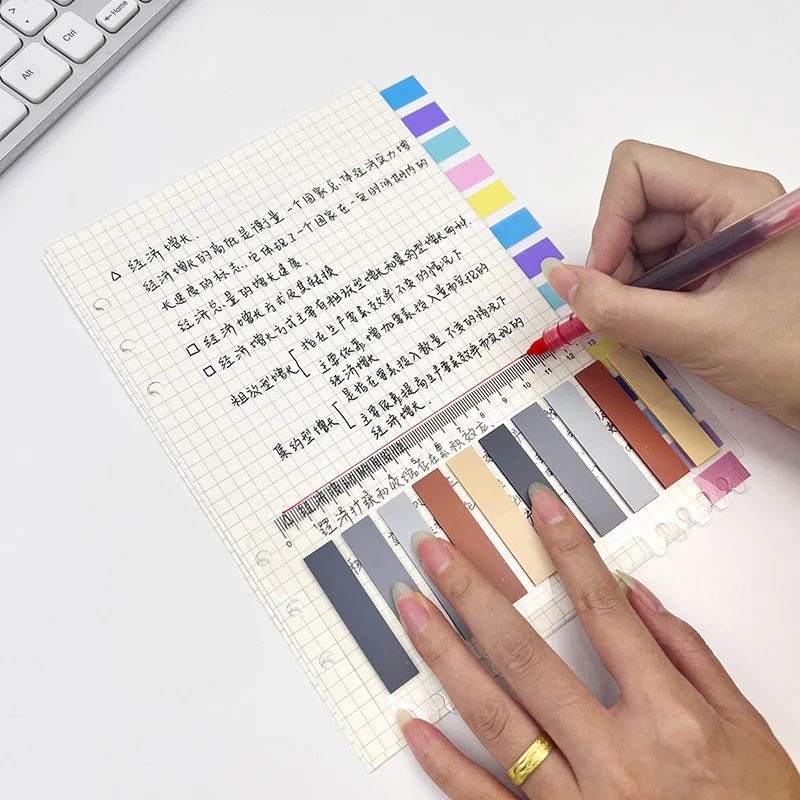 Home
Ctrl
Alt
△ 经济增长.
经济增长的高低是衡量一个国家总体经济实力增
长速度的标志. 它体现了一个国家在一定时间期内的
经济总量的增长速度.
□ 经济增长方式及其转换
□ 经济增长方式主要有粗放型增长和集约型增长两种.
粗放型增长 [ 指在生产要素效率不变的情况下
主要依靠增加要素投入量而实现的
经济增长
集约型增长 [ 是指在要素投入数量不变的情况下
主要依靠提高生产要素效率而实现的
经济增长.
0 1 2 3 4 5 6 7 8 9 10 11 12 13
经济扩张和收缩存在累积效应.